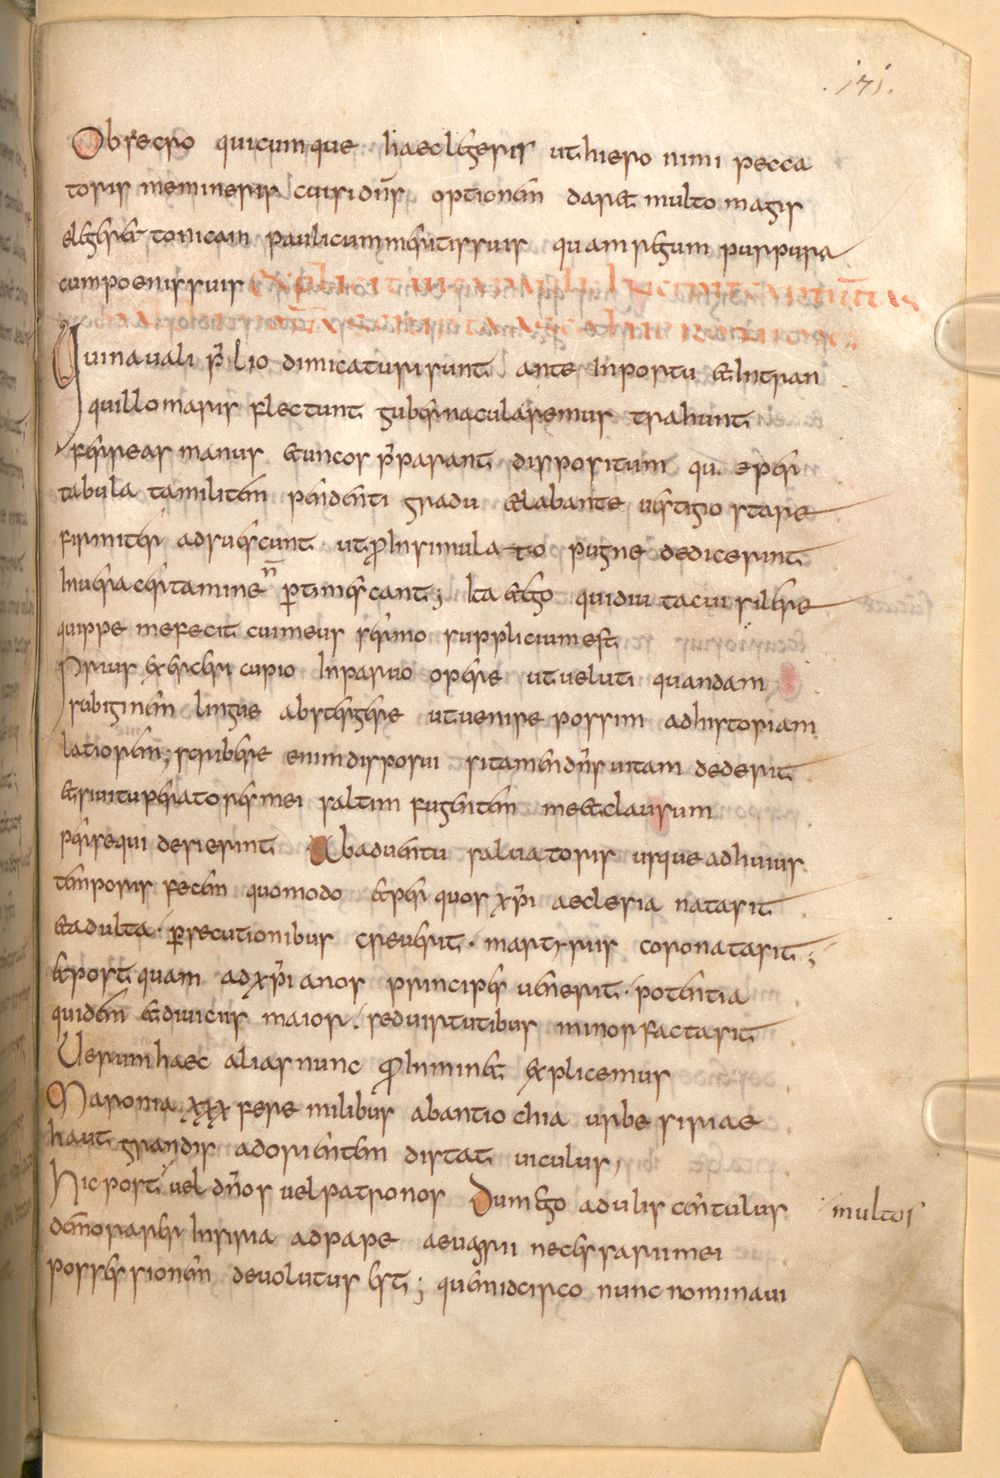 .171.
Obsecro quicumque haec legeris ut hieronimi pecca
toris memineris cui si dn̄s optionem daret multo magis
elegeret tonicam pauli cum meritis suis quam regum purpura
cum poenis suis Explicit uita pauli
Qui nauali p̄lio dimicaturi sunt ante in portu et in tran
quillo maris flectunt gubernacula remus trahunt
ferreas manus et uncos p̄parant dispositum qu. e per
tabulata militem pendenti gradu et labante uestigio stare
firmiter adsuescunt ut ꝓ in simulato pugne dedicerunt
in uera certamine n̄ ꝑtimescant; Ita et ego qui diu tacui silere
quippe me fecit cui meus sermo supplicium est
Prius exerceri cupio in paruo opere ut ueluti quandam
rubiginem lingue abstergere ut uenire possim ad historiam
latiorem; scribere enim disposui si tamen dn̄s uitam dederit
et si uituperatores mei saltim fugentem me et clausum
persequi desierint Ab aduentu saluatoris usque ad huius
temporis fecem quomodo et per quos xp̄i aeclesia nata sit
et adulta · ꝑsecutionibus creuerit · martyrus coronata sit ;
et postquam ad xp̄ianos principes uenerit · potentia
quidem et diuicus maior . sed uirtutibus minor facta sit
Uerum haec alias nunc ꝓ inminet explicemus
Maronia xxx fere milibus ab antiochia urbe sirriae
haut grandis ad orientem distat uiculus,
Hic post uel dn̄os uel patronos Dum ego adulis centulus multos
demorarer in siria ad pape aeuagrii necessarii mei
possessionem deuolutus est ; quem idcirco nunc nominaui